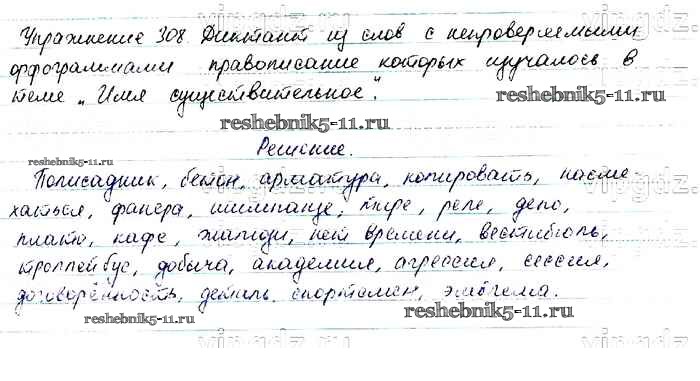 Упражнение 308 Диктант из слов с непроверяемыми
орфограммами правописание которых изучалось в
теме „Имя существительное".
reshebnik5-11.ru
Решение.
reshebnik5-11.ru
Полисадник, бетон, арматура, копировать, насме-
хаться, фанера, шимпанзе, тире, реле, депо,
плато, кафе, жалюзи, нет времени, вестибюль,
троллейбус, добыча, академия, агрессия, сессия,
договорённость, деталь, спортсмен, эмблема.
reshebnik5-11.ru
reshebnik5-11.ru
vipgdz.com